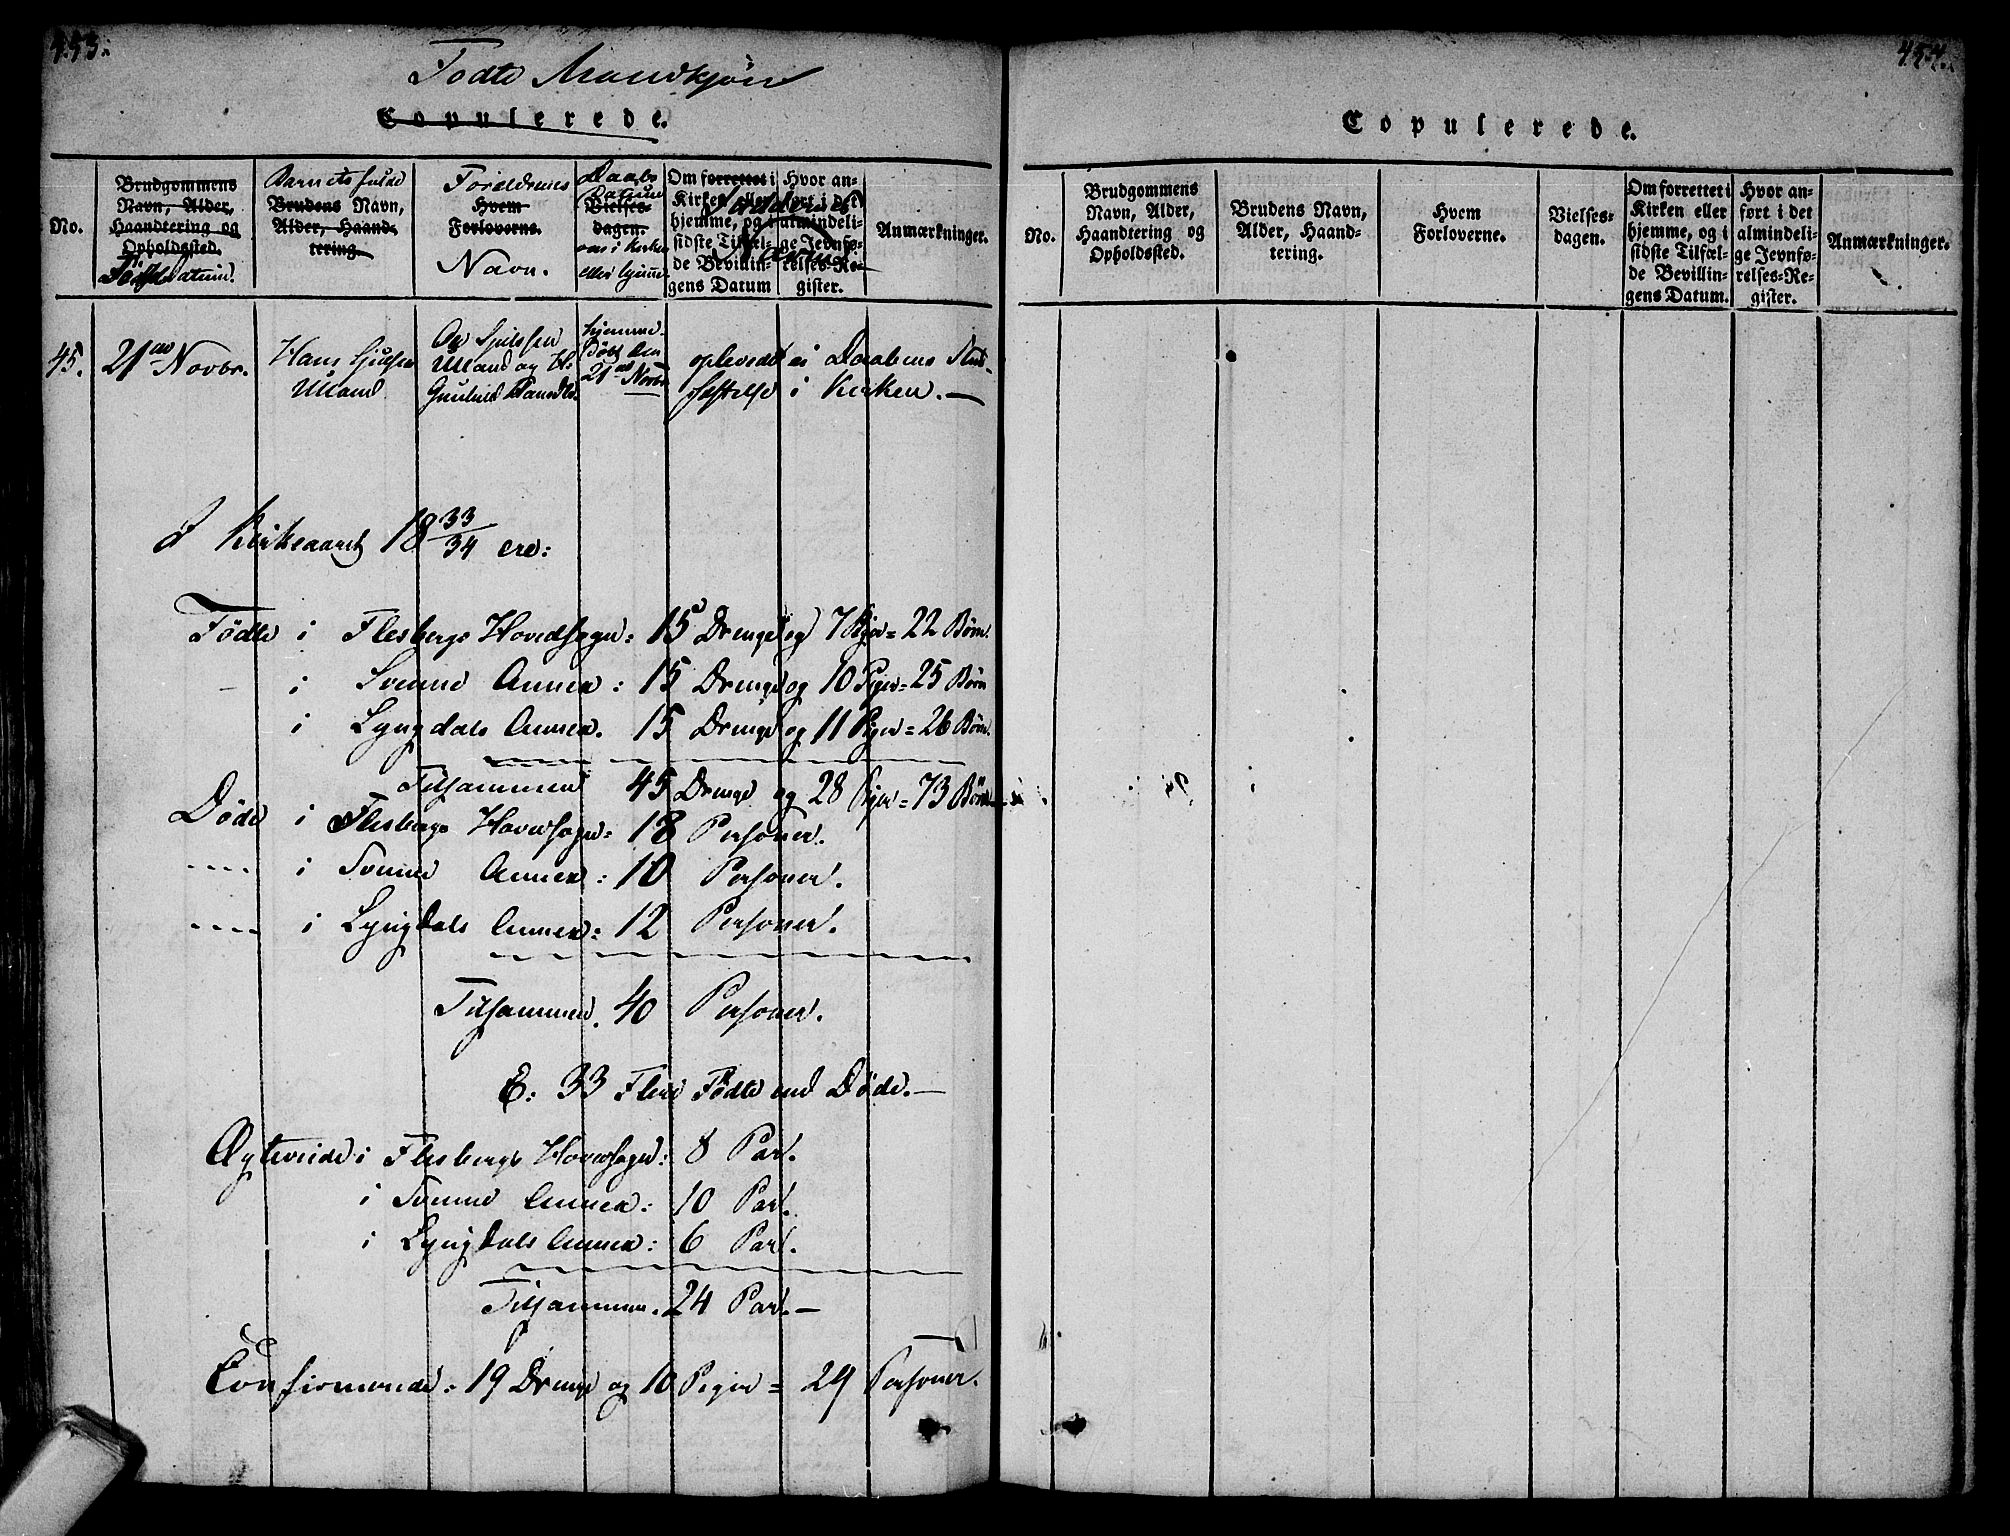 453.
Fødte Mandkjøn
Copulerede.
No.
Brudgommens
Navn, Alder,
Haandtering og
Opholdssted.
Føds. datum.
Barnets fulde
Brudens Navn,
Alder, Haand-
tering.
Forældrenes
Hvem
Forloverne.
Navn.
Daabs
Datum
Vielses-
dagen.
om i Kirken
eller hjemme
Om forrettet i
Kirken eller
hjemme, og i
sidste Tilfæl-
de Bevillin-
gens Datum
Hvor an-
ført i det
almindeli-
ge Jevnfø-
relses-Re-
gister.
Faddernes
Navne
Anmærkninger.
45.
21de Novbr.
Hans
Uland
Uland og
hjemme-
døbt den
21de Novbr.
oplevede ei Daabens Stad-
fæstelse i Kirken. —
I Kirkeaaret 18 33/34 ere:
Fødte i Flesbergs Hovedsogn: 15 Drenge og 7 Piger = 22 Børn.
- i Svenne Annex: 15 Drenge og 10 Piger = 25 Børn
i Lyngdals Annex. 15 Drenge og 11 Piger = 26 Børn.
Tilsammen 45 Drenge og 28 Piger = 73 Børn
Døde i Flesbergs Hovedsogn: 18 Personer.
---- i Svenne Annex: 10 Personer.
---- i Lyngdals Annex: 12 Personer.
Tilsammen. 40 Personer.
E: 33 Flere Fødte end Døde. —
Ægteviede i Flesbergs Hovedsogn: 8 Par.
i Svenne Annex: 10 Par.
i Lyngdals Annex: 6 Par.
Tilsammen. 24 Par. —
Confirmerede: 19 Drenge og 10 Piger = 29 Personer.
454.
Copulerede.
No.
Brudgommens
Navn, Alder,
Haandtering og
Opholdssted.
Brudens Navn,
Alder, Haand-
tering.
Hvem
Forloverne.
Vielses-
dagen.
Om forrettet i
Kirken eller
hjemme, og i
sidste Tilfæl-
de Bevillin-
gens Datum.
Hvor an-
ført i det
almindeli-
ge Jevnfø-
relses-Re-
gister.
Anmærkninger.